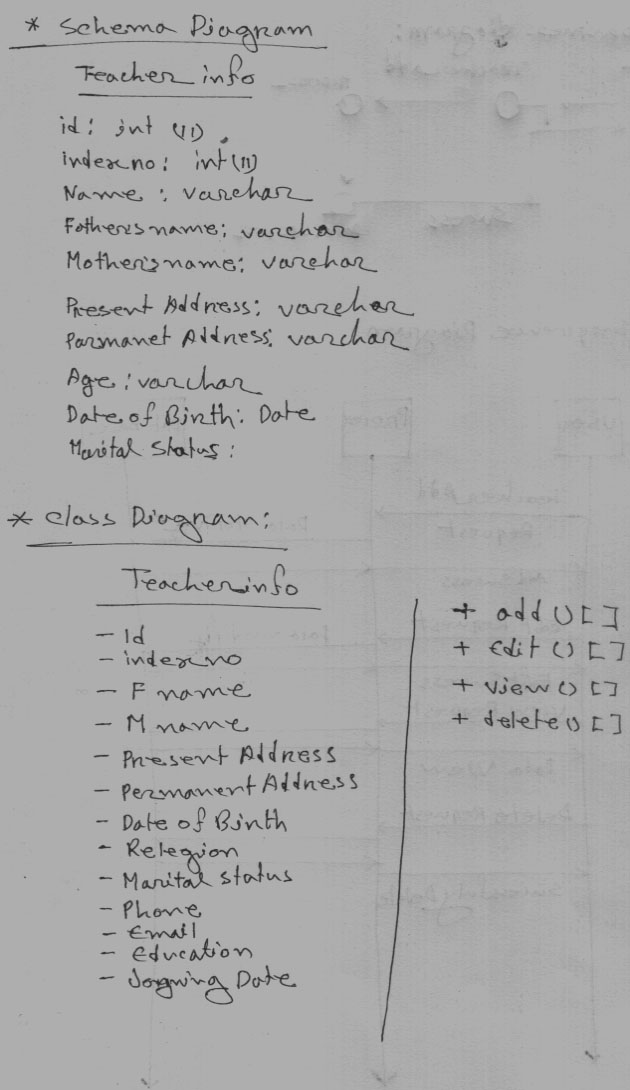 * Schema Diagram
Teacher info
id: int (11)
indexno: int (11)
Name : varchar
Father's name: varchar
Mother's name: varchar
Present Address: varchar
Parmanet Address: varchar
Age : varchar
Date of Birth: Date
Marital Status :
* class Diagram:
Teacher info
- Id
- indexno
- F name
- M name
- Present Address
- Permanent Address
- Date of Birth
- Relegion
- Marital status
- Phone
- Email
- Education
- Joyning Date
+ add () [ ]
+ Edit () [ ]
+ view () [ ]
+ delete () [ ]